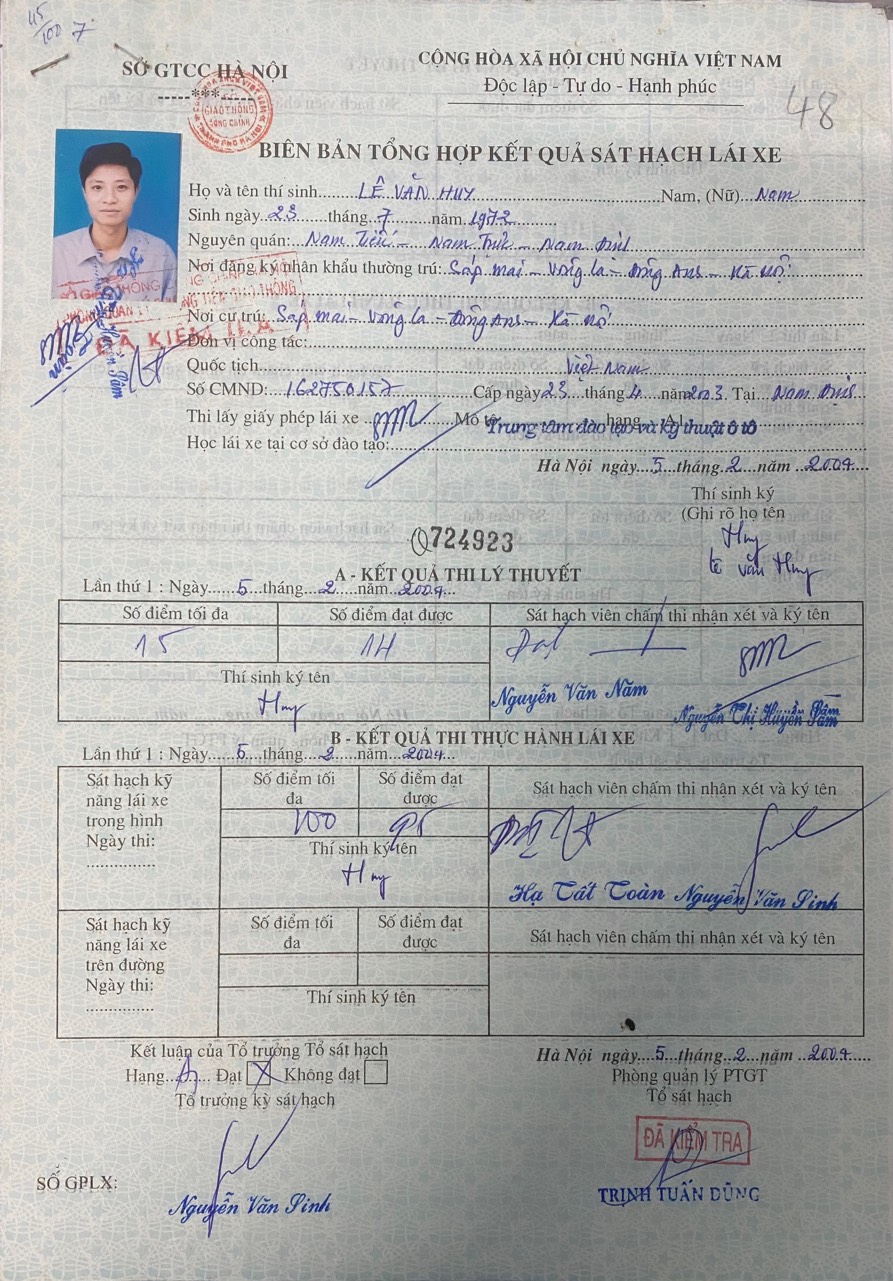 45/100 7
SỞ GTCC HÀ NỘI
-----***-----
CỘNG HÒA XÃ HỘI CHỦ NGHĨA VIỆT NAM
Độc lập - Tự do - Hạnh phúc
48
GIAO THÔNG
CÔNG CHÍNH
BIÊN BẢN TỔNG HỢP KẾT QUẢ SÁT HẠCH LÁI XE
Họ và tên thí sinh......LÊ VĂN HUY......Nam, (Nữ) Nam
Sinh ngày..23......tháng..7......năm 1972
Nguyên quán:...Nam Tiến - Nam Trực - Nam Định
Nơi đăng ký nhân khẩu thường trú: Sáp mai - Võng la - Đông Anh - Hà Nội
Nơi cư trú: Sáp mai - Võng la - Đông Anh - Hà Nội
ĐÃ KIỂM TRA
Đơn vị công tác:
Quốc tịch......Việt Nam
Số CMND:...162750157......Cấp ngày 23...tháng 4...năm 2003. Tại...Nam Định
Thi lấy giấy phép lái xe......Mô tô......hạng...A1
Học lái xe tại cơ sở đào tạo: Trung tâm đào tạo và kỹ thuật ô tô
Hà Nội ngày...5...tháng..2...năm ..2004
Thí sinh ký
(Ghi rõ họ tên
Huy
Lê Văn Huy
724923
A - KẾT QUẢ THI LÝ THUYẾT
Lần thứ 1 : Ngày......5...tháng...2......năm...2004
Số điểm tối đa Số điểm đạt được Sát hạch viên chấm thi nhận xét và ký tên
15 14 Đạt
Thí sinh ký tên
Huy
Nguyễn Văn Năm Nguyễn Thị Huyền Tâm
B - KẾT QUẢ THI THỰC HÀNH LÁI XE
Lần thứ 1 : Ngày......5...tháng...2......năm...2004
Sát hạch kỹ năng lái xe trong hình Ngày thi: ...............
Số điểm tối đa Số điểm đạt được Sát hạch viên chấm thi nhận xét và ký tên
100 95
Thí sinh ký tên
Huy
Hạ Tất Toàn Nguyễn Văn Sinh
Sát hạch kỹ năng lái xe trên đường Ngày thi: ...............
Số điểm tối đa Số điểm đạt được Sát hạch viên chấm thi nhận xét và ký tên
Thí sinh ký tên
Kết luận của Tổ trưởng Tổ sát hạch
Hạng...A1... Đạt X Không đạt
Tổ trưởng kỳ sát hạch
Hà Nội ngày....5...tháng...2...năm ..2004
Phòng quản lý PTGT
Tổ sát hạch
ĐÃ KIỂM TRA
SỐ GPLX:
Nguyễn Văn Sinh
TRỊNH TUẤN DŨNG